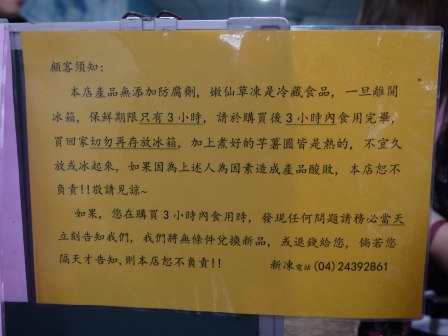 顧客須知:
本店產品無添加防腐劑, 嫩仙草凍是冷藏食品, 一旦離開
冰箱, 保鮮期限只有3小時, 請於購買後3小時內食用完畢,
買回家切勿再存放冰箱, 加上煮好的芋薯圓皆是熱的, 不宜久
放或冰起來, 如果因為上述人為因素造成產品酸敗, 本店恕不
負責!!敬請見諒~
如果, 您在購買3小時內食用時, 發現任何問題請務必當天
立刻告知我們, 我們將無條件兌換新品, 或退錢給您, 倘若您
隔天才告知,則本店恕不負責!! 新凍電話(04)24392861